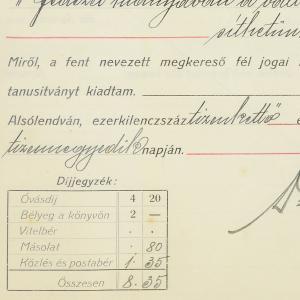 Miről, a fent nevezett megkereső fél jogai
tanusitványt kiadtam.
Alsólendván, ezerkilenczszáz tizenkettő
tizennegyedik napján.
Díjjegyzék:
Óvásdíj 4 20
Bélyeg a könyvön 2 —
Vitelbér . .
Másolat . 80
Közlés és postabér 1. 35
Összesen 8. 35